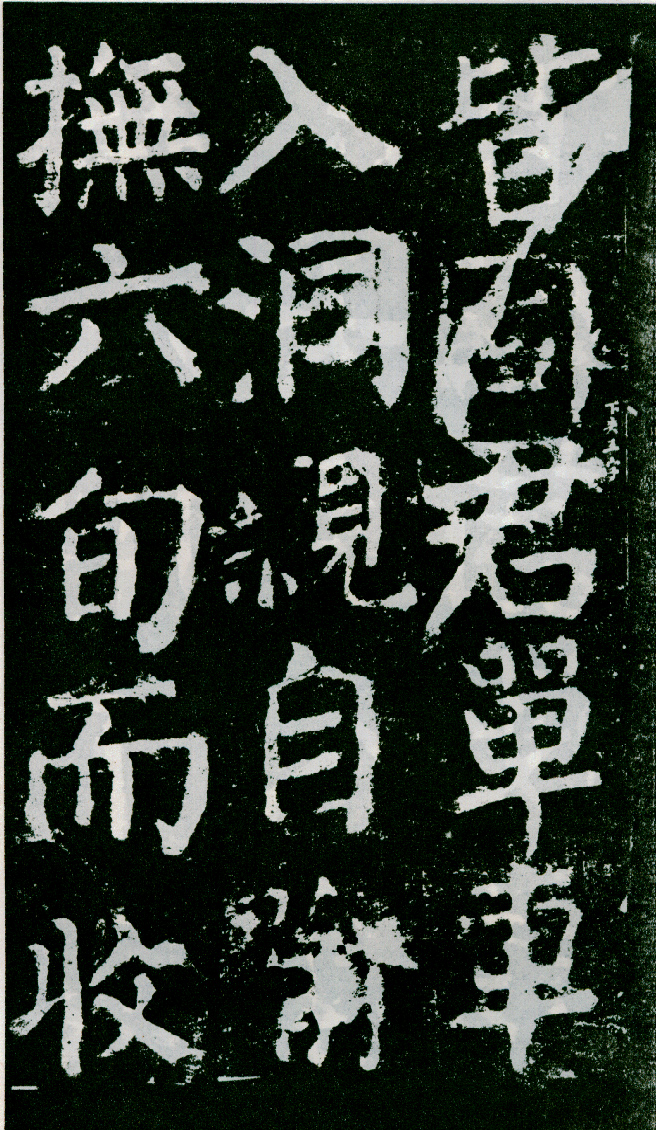 皆固君單車
入洞親自諭
撫六旬而收